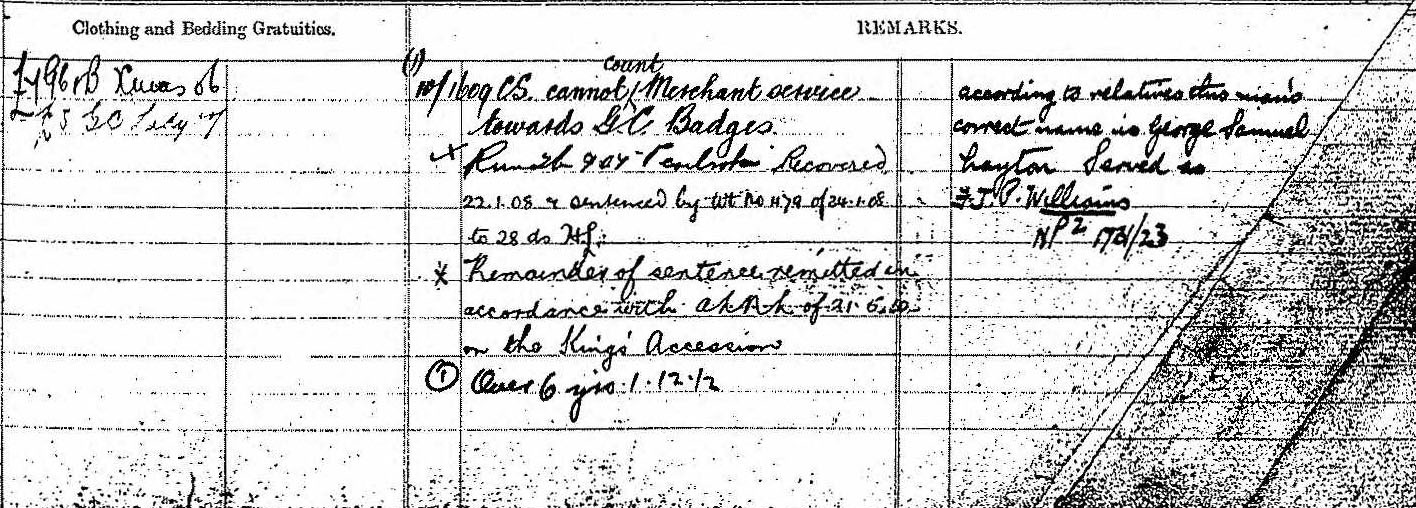 Clothing and Bedding Gratuities.
REMARKS.
(1)
count
1609 CS. cannot Merchant service
towards G.C. Badges.
Recovered
22.1.08 & sentenced by Wt No 479 of 24.1.08
to 28 ds HL.
Remainder of sentence remitted in
accordance with of 21.5.10
on the King's Accession
① Over 6 yrs. 1.12.12
according to relatives this man's
correct name is George Samuel
Layton Served as
F.J.P. Williams
NP2 /23